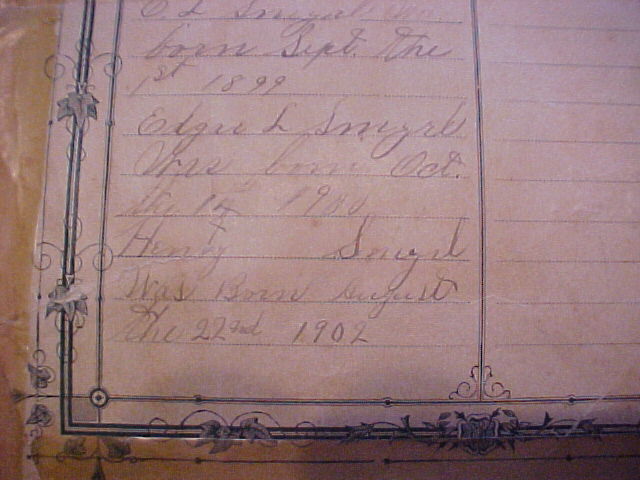 E. L Smyrl was
born Sept. the
1st 1899
Edgie L Smyrl
Was born Oct.
the 14 1900
Henry Smyrl
Was Born August
the 22nd 1902